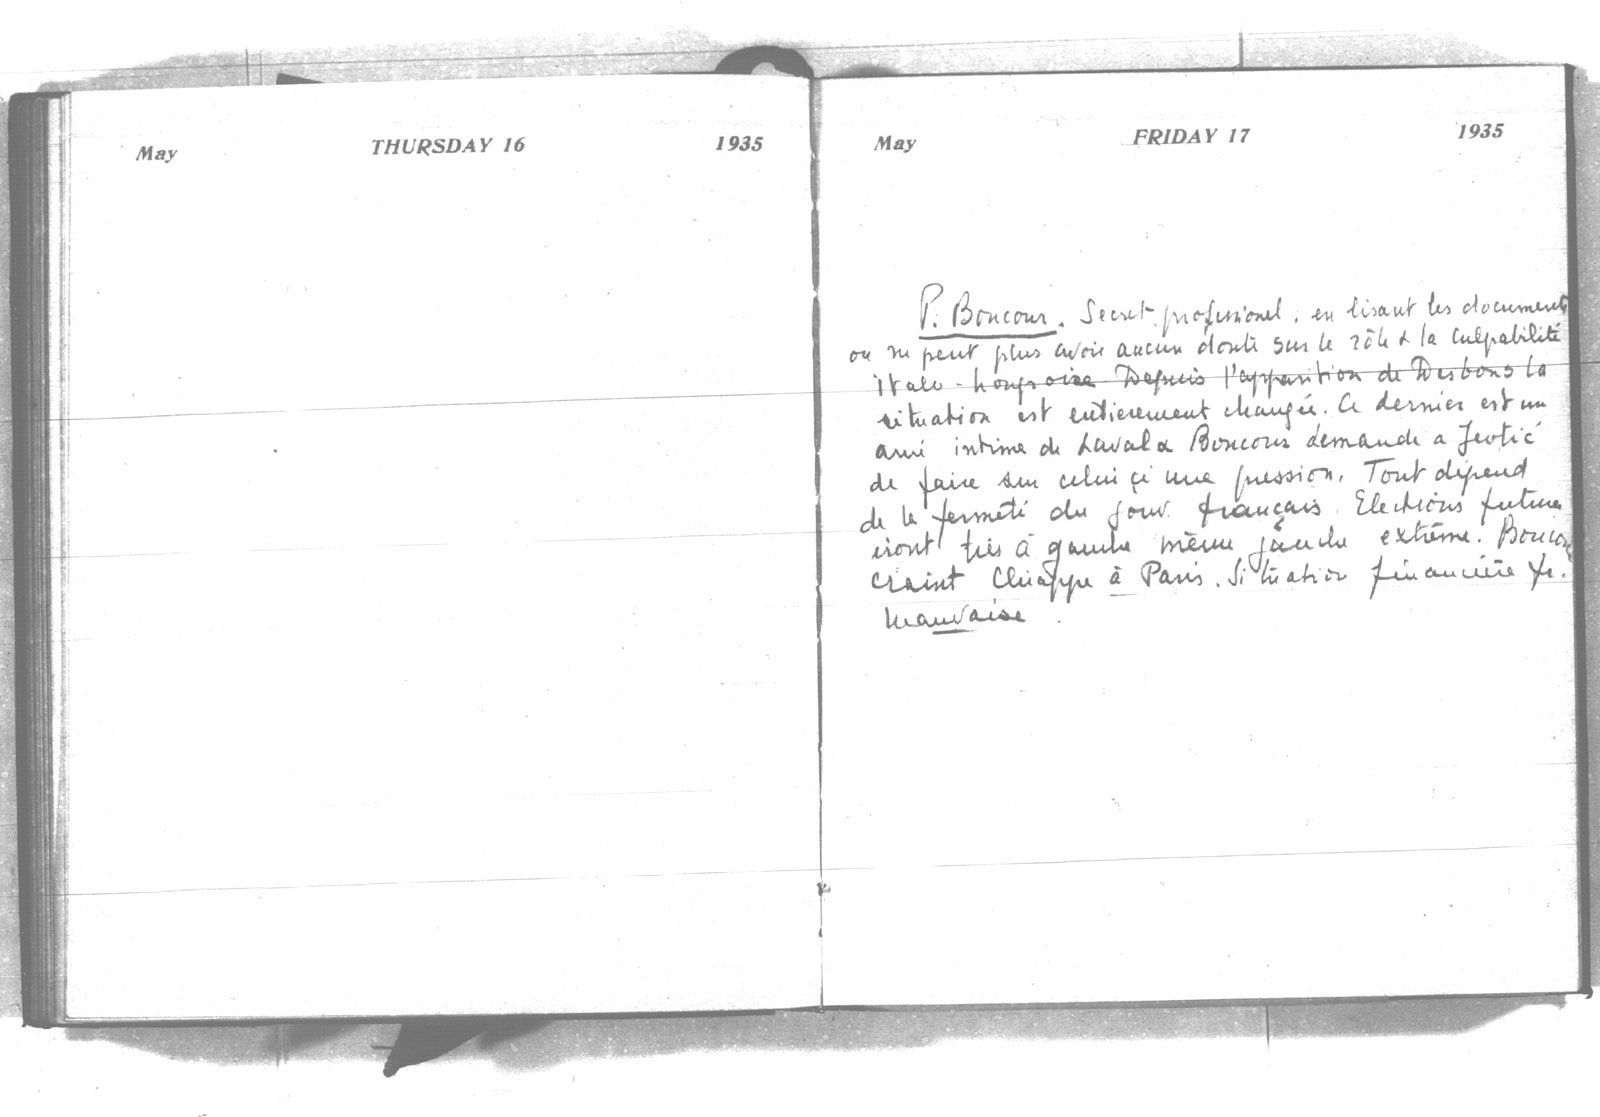 May THURSDAY 16 1935
May FRIDAY 17 1935
P. Boncour. Secret professionel, en lisant les documents
on ne peut plus avoir aucun doute sur le rôle & la culpabilité
italo-hongroise Depuis l'apparition de Desbons la
situation est entièrement changée. Ce dernier est un
ami intime de Laval & Boncour demande a Jevtić
de faire sur celui çi une pression. Tout dépend
de la fermeté du gouv. français. Elections futures
iront très à gauche même gauche extrême. Boncour
craint Chiappe à Paris. Situation financière fr.
mauvaise.